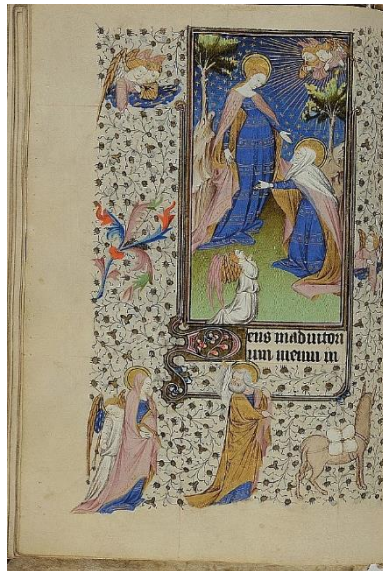 Deus in adiutori
um meum in